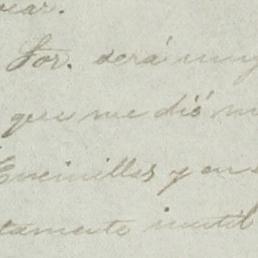 ear.
Sor. será muy
que me dió m
Encinillas y en
tamente inutil